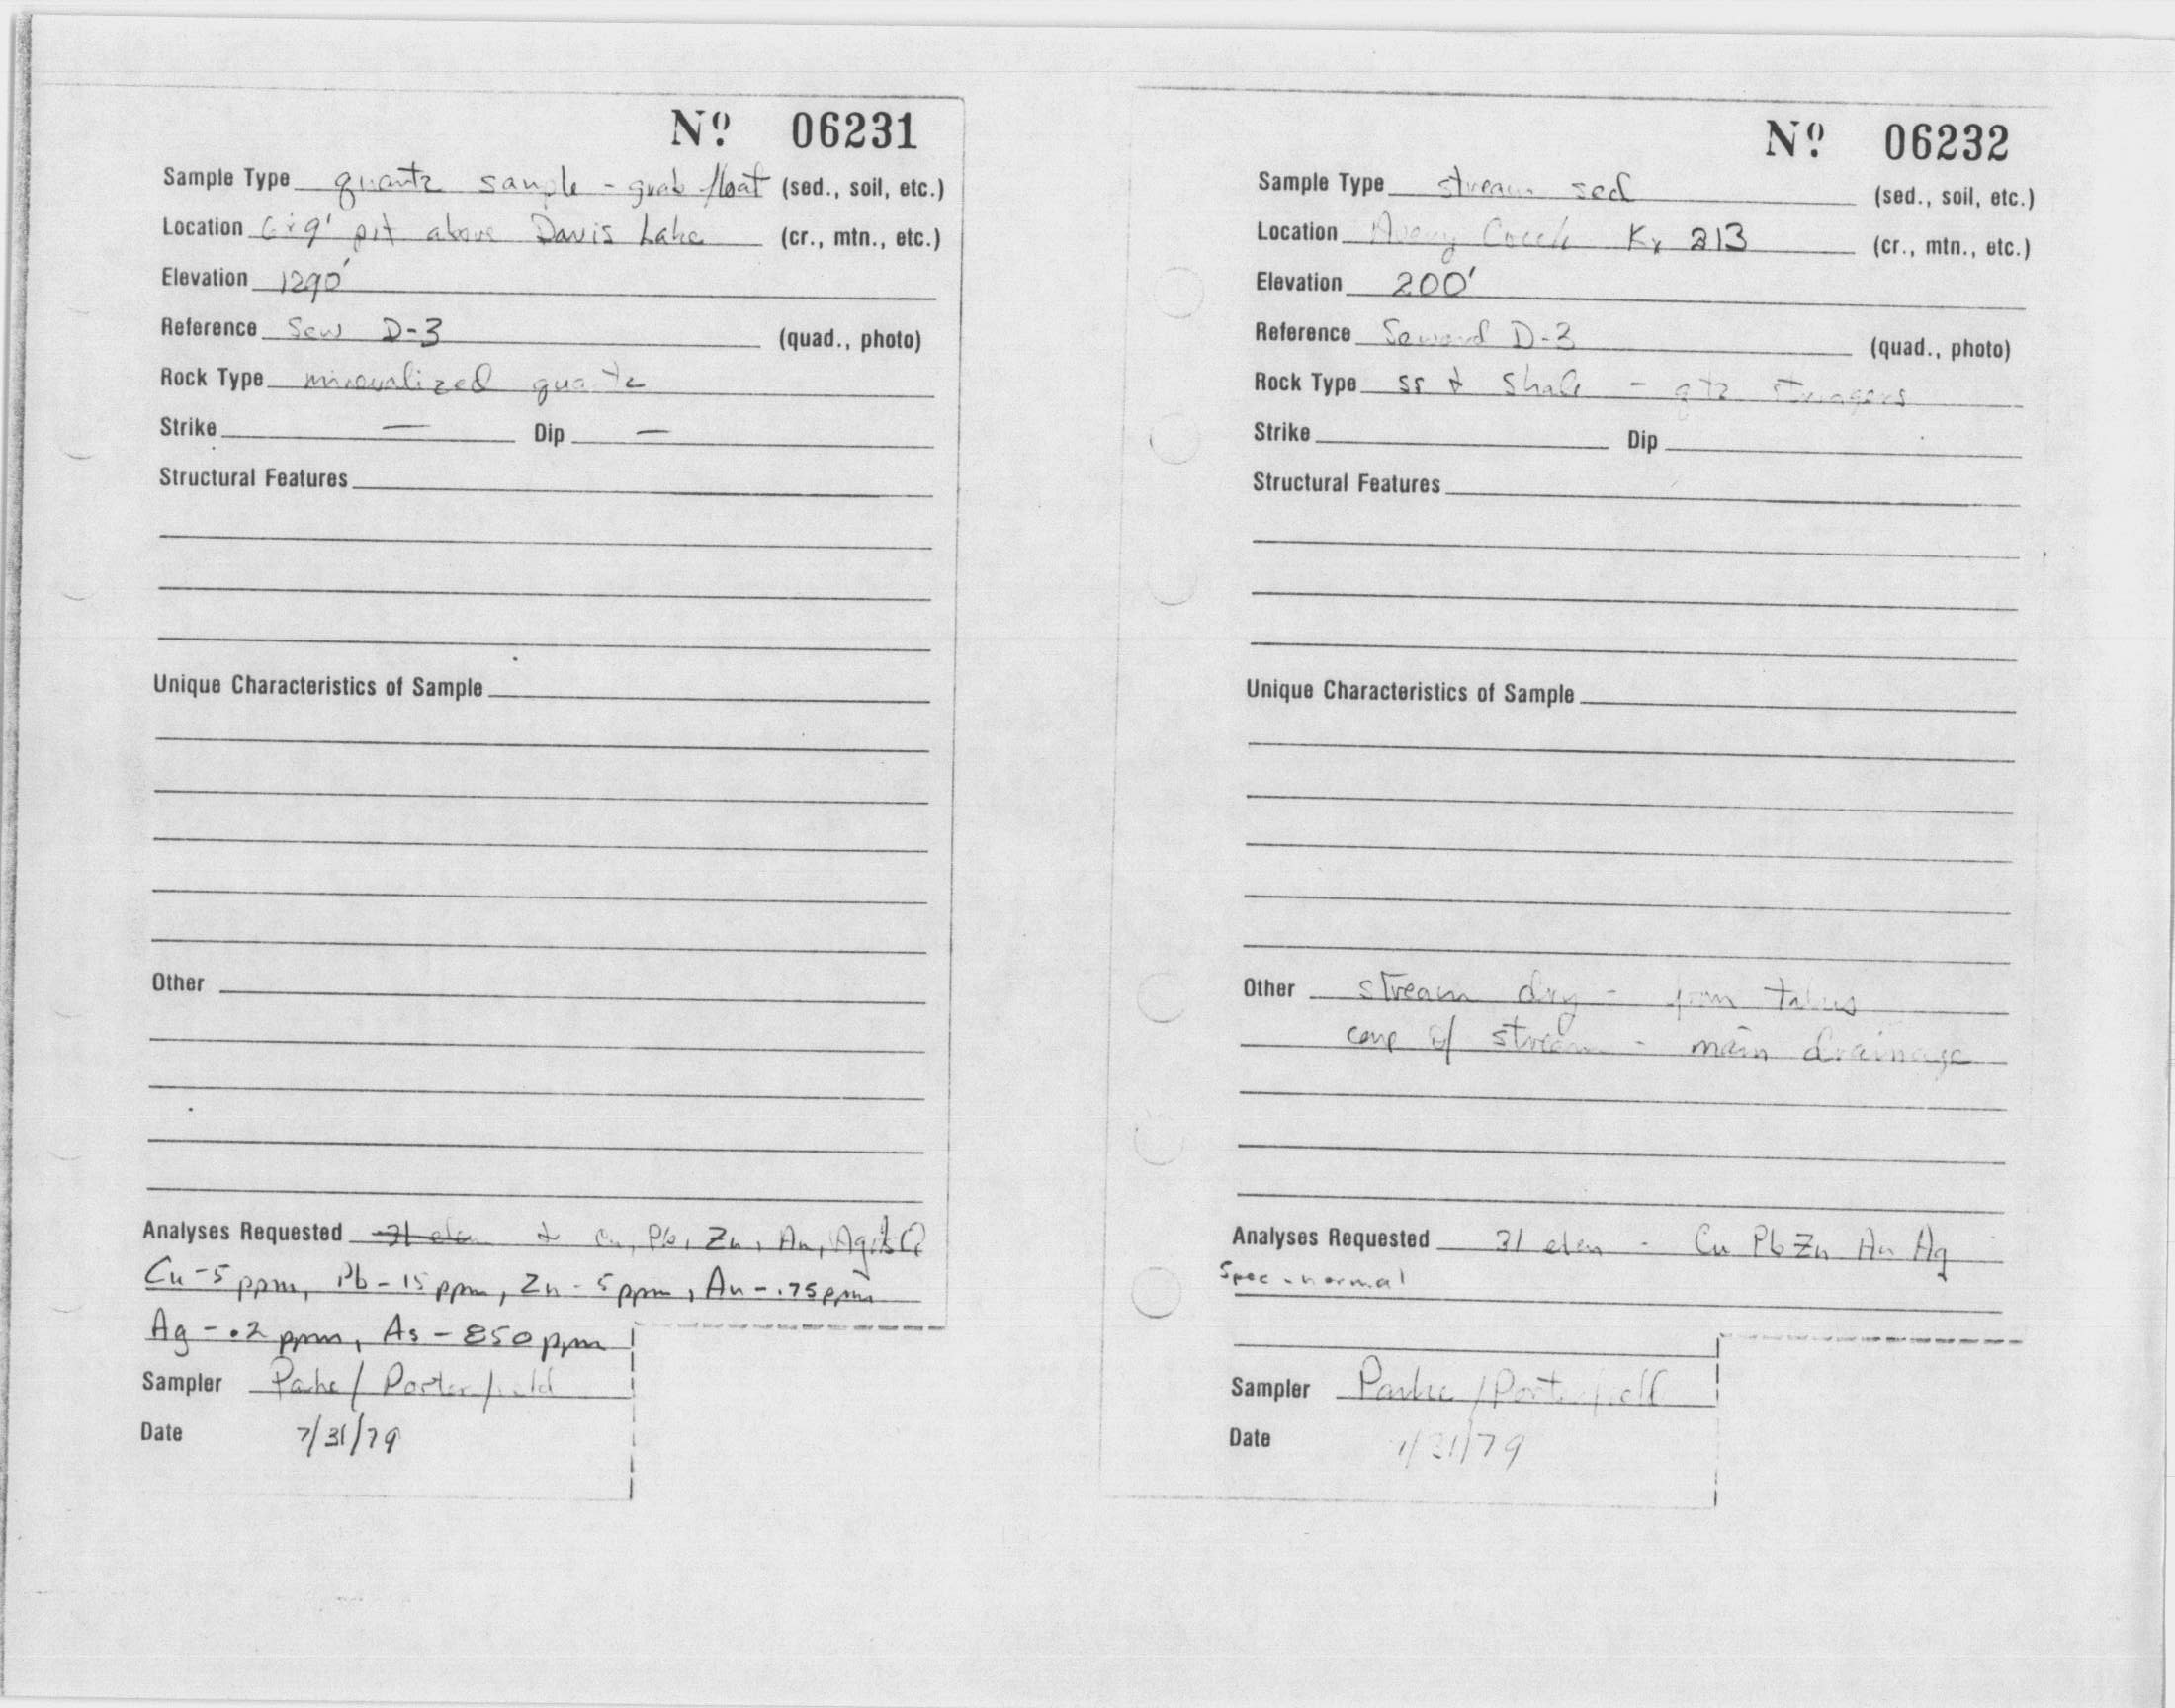 Nº 06231
Sample Type quartz sample - grab float (sed., soil, etc.)
Location 6x9' pit above Davis Lake (cr., mtn., etc.)
Elevation 1290'
Reference Sew D-3 (quad., photo)
Rock Type mineralized quartz
Strike — Dip —
Structural Features
Unique Characteristics of Sample
Other
Analyses Requested 31 elem & Cu, Pb, Zn, Au, Ag,
Cu-5 ppm, Pb-15 ppm, Zn-5 ppm, Au-.75 ppm
Ag-.2 ppm, As-850 ppm
Sampler Parke/Porterfield
Date 7/31/79
Nº 06232
Sample Type stream sed (sed., soil, etc.)
Location Avery Creek Kx 213 (cr., mtn., etc.)
Elevation 200'
Reference Seward D-3 (quad., photo)
Rock Type ss & shale - qtz stringers
Strike Dip
Structural Features
Unique Characteristics of Sample
Other stream dry - from talus
cone of stream - main drainage
Analyses Requested 31 elem - Cu Pb Zn Au Ag
Spec - normal
Sampler Parke/Porterfield
Date 7/31/79